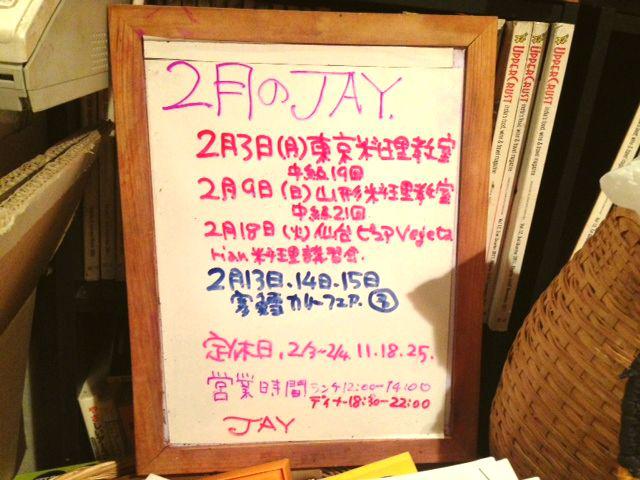 2月のJAY.
2月3日(月)東京料理教室
中級19回
2月9日(日)山形料理教室
中級21回
2月18日(火)仙台ピュアVegeta
rian料理講習会.
2月13日.14日.15日
カレーフェア.
定休日.2/3~2/4.11.18.25.
営業時間 ランチ12:00-14:00
ディナー18:30-22:00
JAY
UPPERCRUST
UPPERCRUST
UPPERCRUST